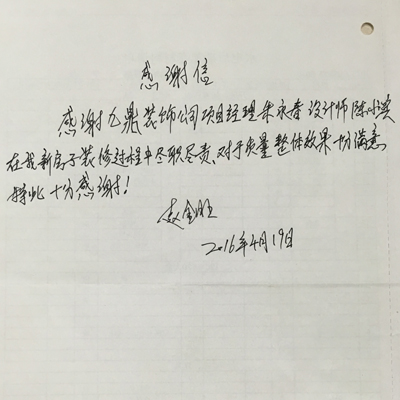 感谢信
感谢九鼎装饰公司项目经理朱永春设计师陈小奕
在我新房子装修过程中尽职尽责、对于质量整体效果十分满意
特此十分感谢!
赵金旺
2016年4月19日